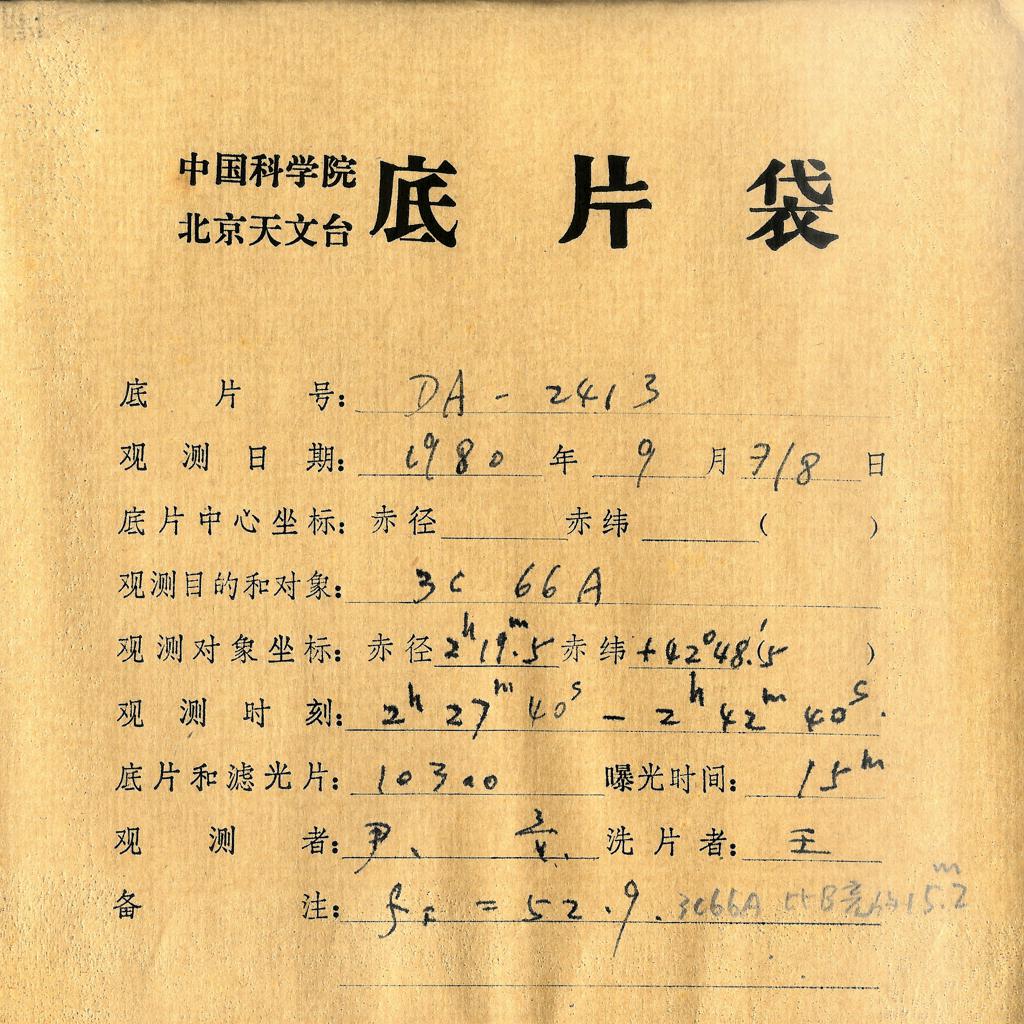 中国科学院
北京天文台
底片袋
底片号: DA - 2413
观测日期: 1980 年 9 月 7/8 日
底片中心坐标: 赤径 赤纬 ( )
观测目的和对象: 3C 66A
观测对象坐标: 赤径 2h19m.5 赤纬 +42°48.'5 )
观测时刻: 2h 27m 40s - 2h 42m 40s.
底片和滤光片: 103aO 曝光时间: 15m
观测者: 尹、 洗片者: 王
备注: = 52.9. 3C66A 比B亮 15.2m